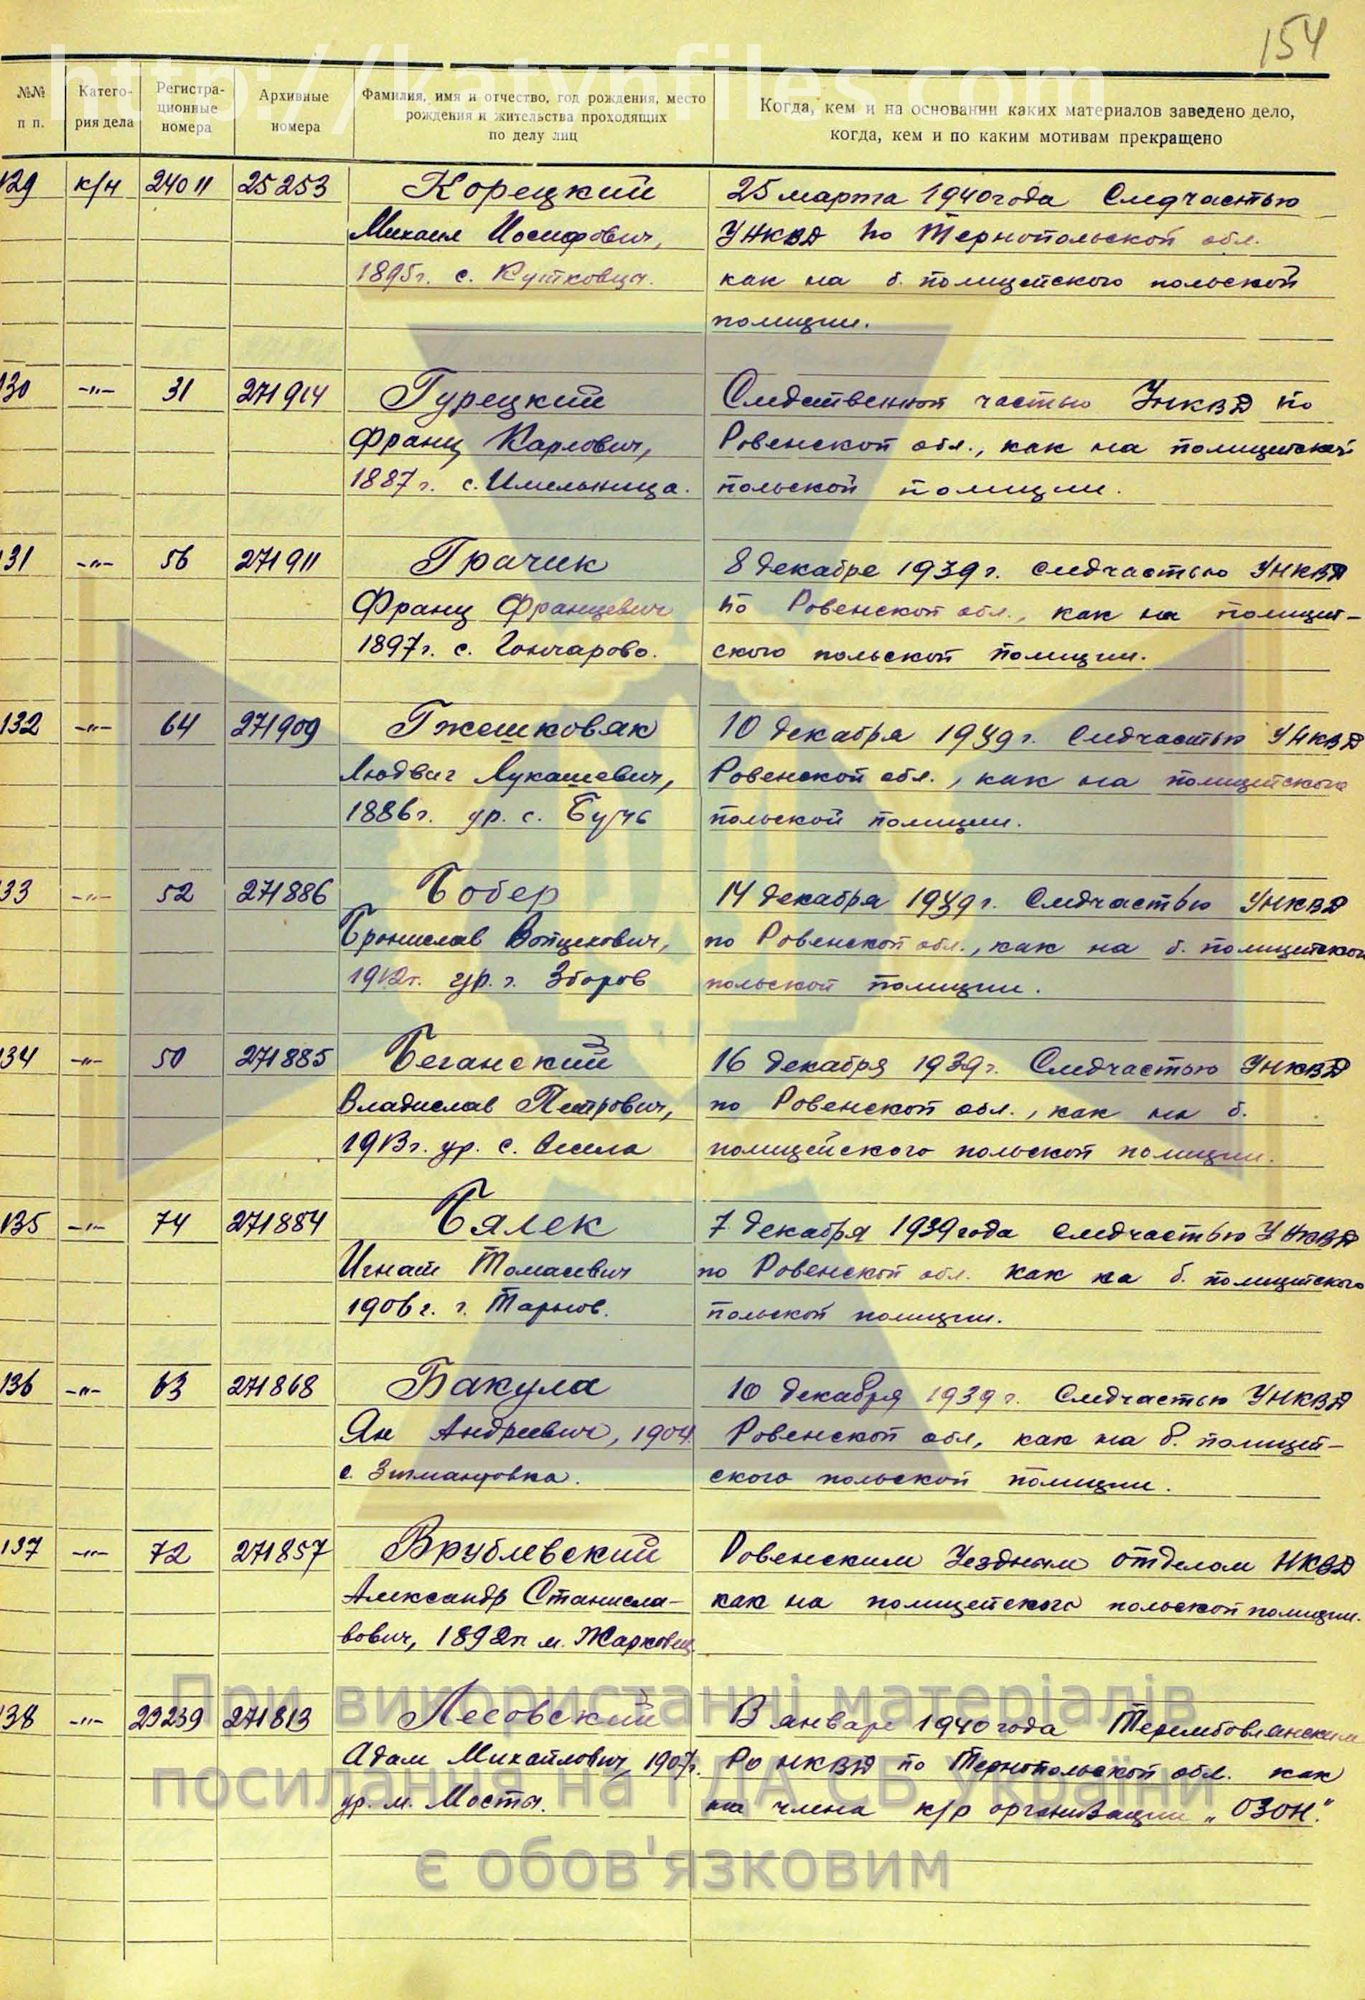 154
http://katynfiles.com
№№ п п.
Катего-рия дела
Регистра-ционные номера
Архивные номера
Фамилия, имя и отчество, год рождения, место рождения и жительства проходящих по делу лиц
Когда, кем и на основании каких материалов заведено дело, когда, кем и по каким мотивам прекращено
129 к/ч 24011 25253 Корецкий 25 марта 1940 года Следчастью
Михаил Иосифович, УНКВД по Тернопольской обл.
1895г. с. как на б. полицейского польской
полиции.
130 -"- 31 271914 Гурецкий Следственной частью УНКВД по
Франц Карлович, Ровенской обл., как на полицейского
1887г. с. Имельница. польской полиции.
131 -"- 56 271911 Грачик 8 декабре 1939г. следчастью УНКВД
Франц Францевич по Ровенской обл., как на полицей-
1897г. с. Гончарово. ского польской полиции.
132 -"- 64 271909 Гжешковяк 10 декабря 1939г. Следчастью УНКВД
Людвиг Лукашевич, Ровенской обл., как на полицейского
1886г. ур. с. польской полиции.
133 -"- 52 271886 Бобер 14 декабря 1939г. Следчастью УНКВД
Бронислав Войцехович, по Ровенской обл., как на б. полицейского
1912г. ур. г. Зборов польской полиции.
134 -"- 50 271885 Беганский 16 декабря 1939г. Следчастью УНКВД
Владислав Петрович, по Ровенской обл., как на б.
1913г. ур. с. полицейского польской полиции.
135 -"- 74 271884 Бялек 7 декабря 1939 года следчастью УНКВД
Игнат Томасевич по Ровенской обл. как на б. полицейского
1906г. г. Тарнов. польской полиции.
136 -"- 63 271868 Бакула 10 декабря 1939г. Следчастью УНКВД
Ян Андреевич, 1904 Ровенской обл, как на б. полицей-
с. ского польской полиции.
137 -"- 72 271857 Врублевский Ровенским Уездным отделом НКВД
Александр Станисла- как на полицейского польской полиции.
вович, 1892г м.
138 -"- 29239 271813 Лесовский В январе 1940 года Теремbовлянским
Адам Михайлович, 1907г. РО НКВД по Тернопольской обл. как
ур. м. Мосты. на члена к/р организации „ОЗОН".
При використанні матеріалів
посилання на ГДА СБ України
є обов'язковим